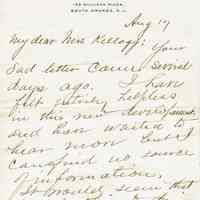 152 Scotland Road,
South Orange, N.J.
Aug 17
My dear Miss Kellogg: Your
sad letter came several
days ago. I have
felt entirely helpless
in this new development
and have waited to
hear more but I
can find no source
of information.
It would seem that